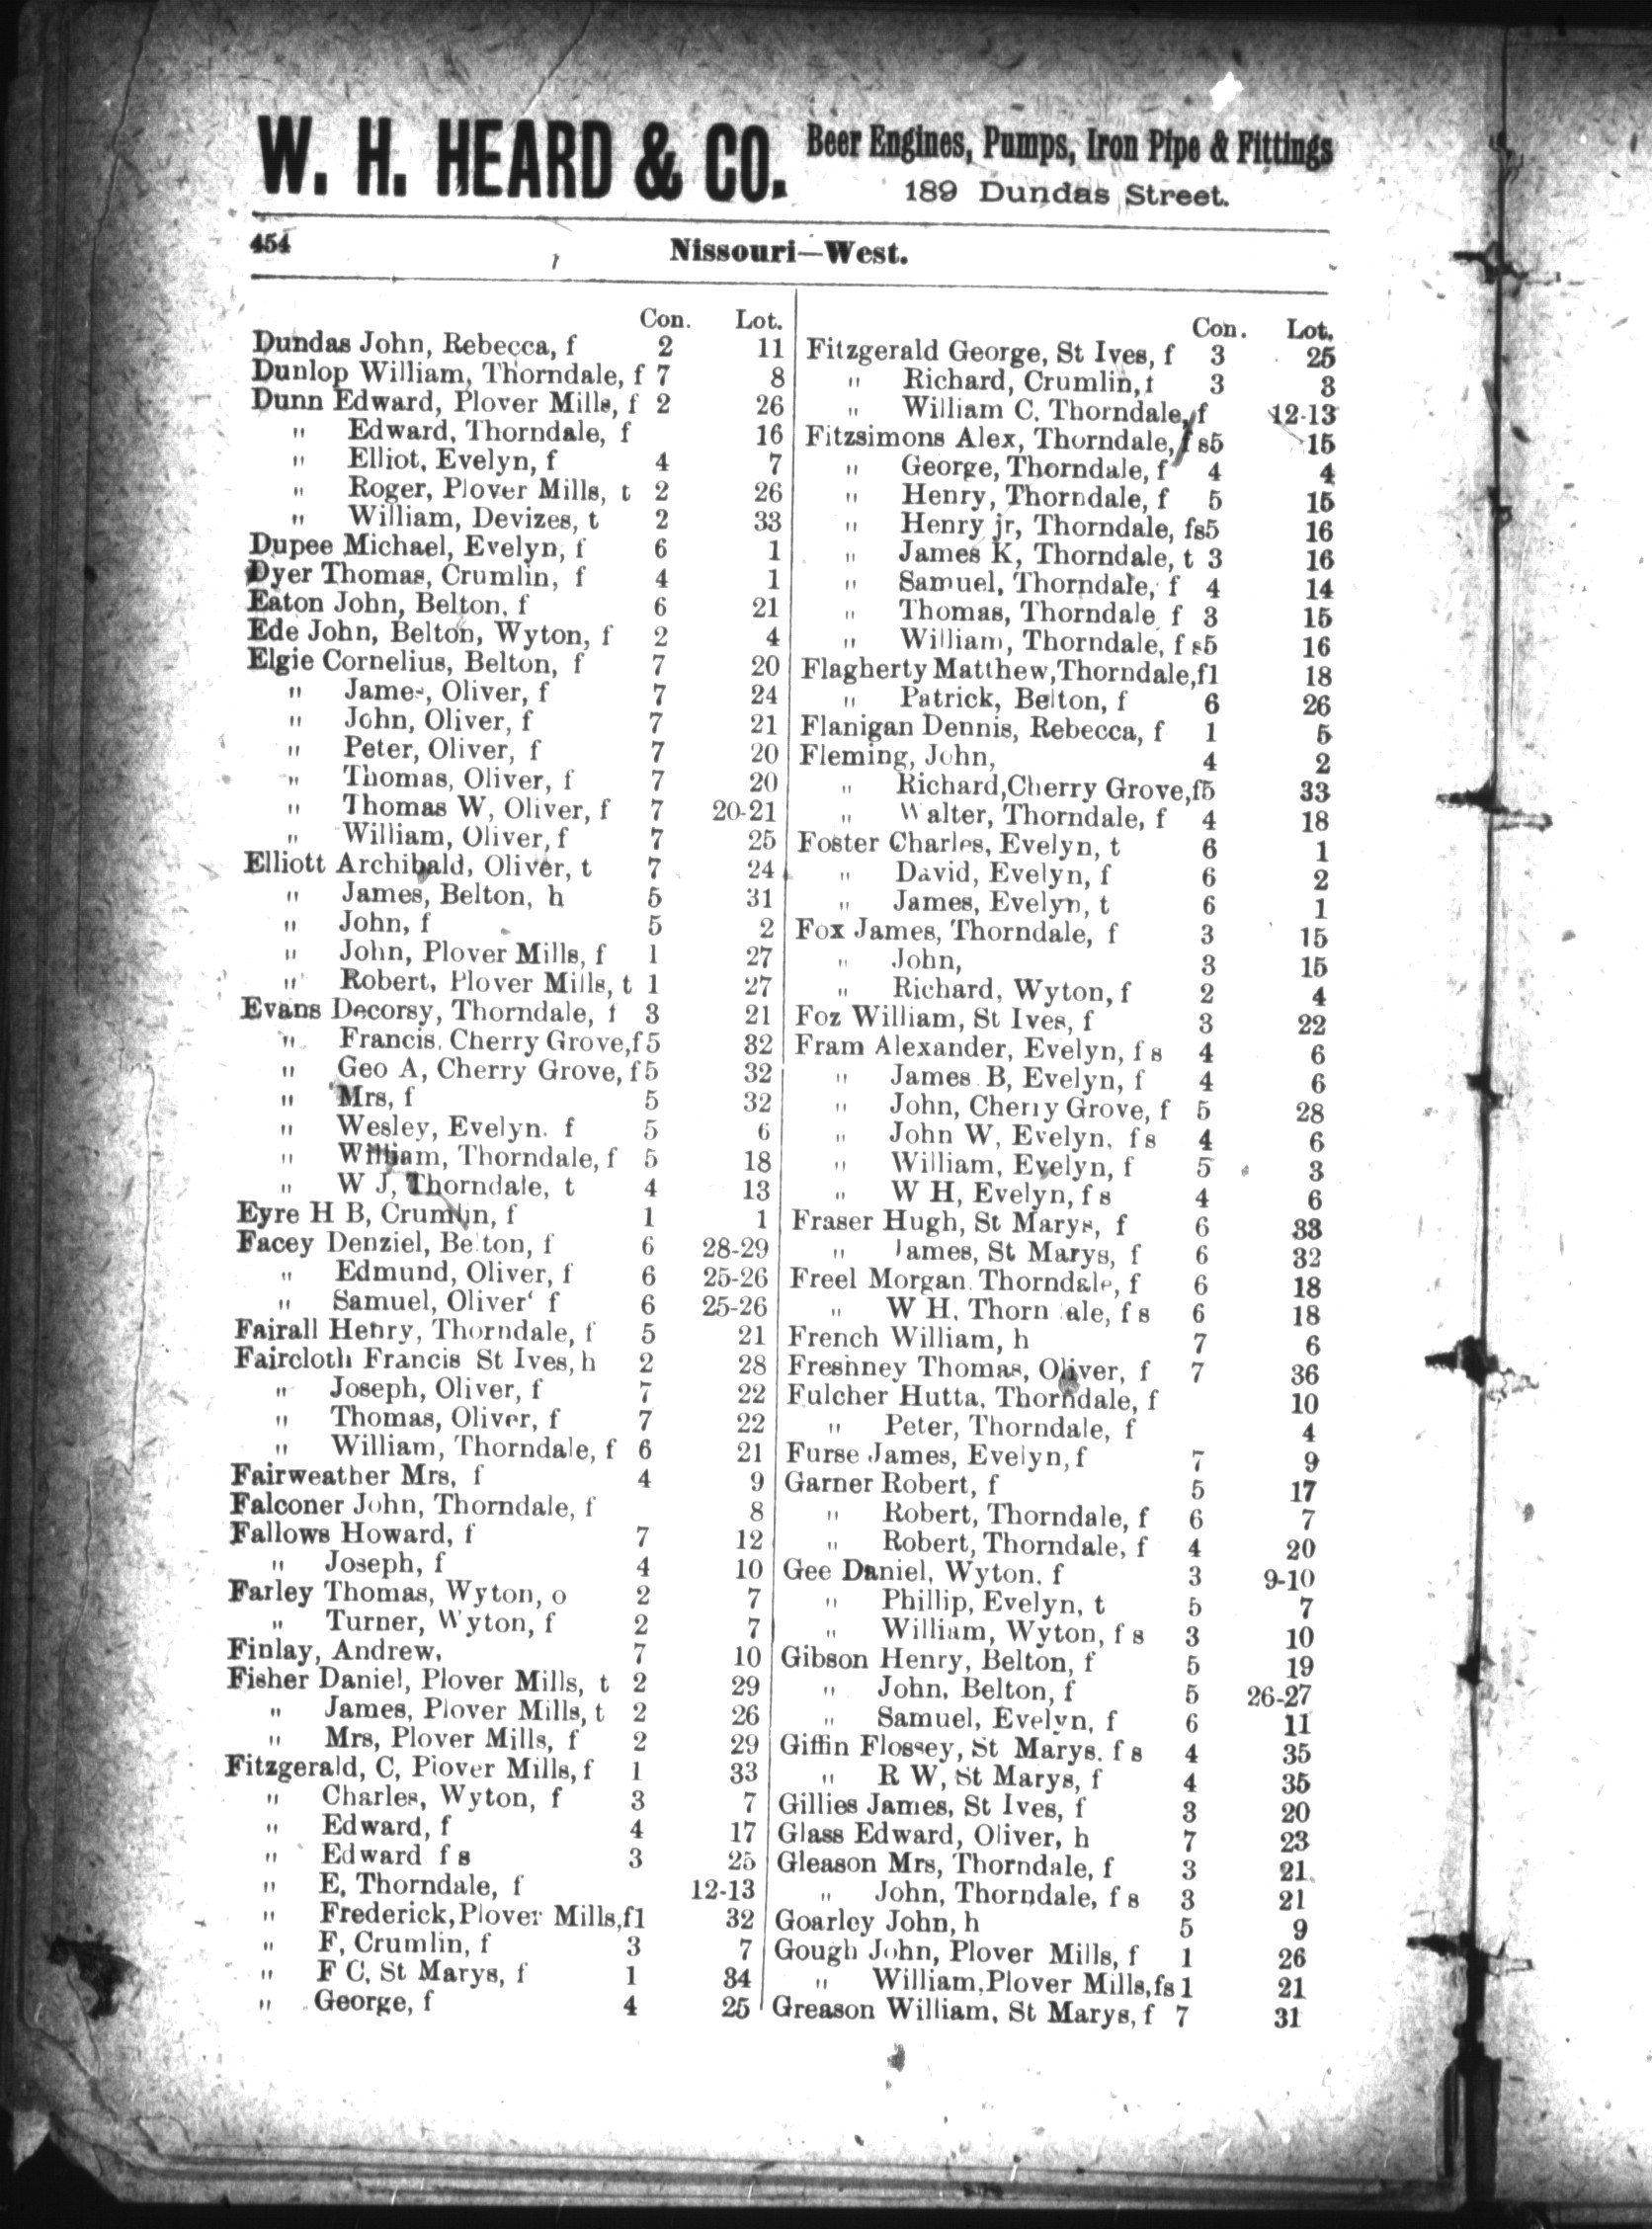 W. H. HEARD & CO. Beer Engines, Pumps, Iron Pipe & Fittings
189 Dundas Street.
454 Nissouri—West.
Con. Lot.
Dundas John, Rebecca, f 2 11
Dunlop William, Thorndale, f 7 8
Dunn Edward, Plover Mills, f 2 26
" Edward, Thorndale, f 16
" Elliot, Evelyn, f 4 7
" Roger, Plover Mills, t 2 26
" William, Devizes, t 2 33
Dupee Michael, Evelyn, f 6 1
Dyer Thomas, Crumlin, f 4 1
Eaton John, Belton, f 6 21
Ede John, Belton, Wyton, f 2 4
Elgie Cornelius, Belton, f 7 20
" James, Oliver, f 7 24
" John, Oliver, f 7 21
" Peter, Oliver, f 7 20
" Thomas, Oliver, f 7 20
" Thomas W, Oliver, f 7 20-21
" William, Oliver, f 7 25
Elliott Archibald, Oliver, t 7 24
" James, Belton, h 5 31
" John, f 5 2
" John, Plover Mills, f 1 27
" Robert, Plover Mills, t 1 27
Evans Decorsy, Thorndale, f 3 21
" Francis, Cherry Grove, f 5 32
" Geo A, Cherry Grove, f 5 32
" Mrs, f 5 32
" Wesley, Evelyn. f 5 6
" William, Thorndale, f 5 18
" W J, Thorndale, t 4 13
Eyre H B, Crumlin, f 1 1
Facey Denziel, Belton, f 6 28-29
" Edmund, Oliver, f 6 25-26
" Samuel, Oliver' f 6 25-26
Fairall Henry, Thorndale, f 5 21
Faircloth Francis St Ives, h 2 28
" Joseph, Oliver, f 7 22
" Thomas, Oliver, f 7 22
" William, Thorndale, f 6 21
Fairweather Mrs, f 4 9
Falconer John, Thorndale, f 8
Fallows Howard, f 7 12
" Joseph, f 4 10
Farley Thomas, Wyton, o 2 7
" Turner, Wyton, f 2 7
Finlay, Andrew, 7 10
Fisher Daniel, Plover Mills, t 2 29
" James, Plover Mills, t 2 26
" Mrs, Plover Mills, f 2 29
Fitzgerald, C, Plover Mills, f 1 33
" Charles, Wyton, f 3 7
" Edward, f 4 17
" Edward f s 3 25
" E, Thorndale, f 12-13
" Frederick, Plover Mills, f 1 32
" F, Crumlin, f 3 7
" F C, St Marys, f 1 34
" George, f 4 25
Con. Lot.
Fitzgerald George, St Ives, f 3 25
" Richard, Crumlin, t 3 3
" William C. Thorndale, f 12-13
Fitzsimons Alex, Thorndale, f s 5 15
" George, Thorndale, f 4 4
" Henry, Thorndale, f 5 15
" Henry jr, Thorndale, fs 5 16
" James K, Thorndale, t 3 16
" Samuel, Thorndale, f 4 14
" Thomas, Thorndale, f 3 15
" William, Thorndale, f s 5 16
Flagherty Matthew, Thorndale, f 1 18
" Patrick, Belton, f 6 26
Flanigan Dennis, Rebecca, f 1 5
Fleming, John, 4 2
" Richard, Cherry Grove, f 5 33
" Walter, Thorndale, f 4 18
Foster Charles, Evelyn, t 6 1
" David, Evelyn, f 6 2
" James, Evelyn, t 6 1
Fox James, Thorndale, f 3 15
" John, 3 15
" Richard, Wyton, f 2 4
Foz William, St Ives, f 3 22
Fram Alexander, Evelyn, f s 4 6
" James B, Evelyn, f 4 6
" John, Cherry Grove, f 5 28
" John W, Evelyn, f s 4 6
" William, Evelyn, f 5 3
" W H, Evelyn, f s 4 6
Fraser Hugh, St Marys, f 6 33
" James, St Marys, f 6 32
Freel Morgan. Thorndale, f 6 18
" W H, Thorn ale, f s 6 18
French William, h 7 6
Freshney Thomas, Oliver, f 7 36
Fulcher Hutta, Thorndale, f 10
" Peter, Thorndale, f 4
Furse James, Evelyn, f 7 9
Garner Robert, f 5 17
" Robert, Thorndale, f 6 7
" Robert, Thorndale, f 4 20
Gee Daniel, Wyton. f 3 9-10
" Phillip, Evelyn, t 5 7
" William, Wyton, f s 3 10
Gibson Henry, Belton, f 5 19
" John, Belton, f 5 26-27
" Samuel, Evelyn, f 6 11
Giffin Flossey, St Marys. f s 4 35
" R W, St Marys, f 4 35
Gillies James, St Ives, f 3 20
Glass Edward, Oliver, h 7 23
Gleason Mrs, Thorndale, f 3 21
" John, Thorndale, f s 3 21
Goarley John, h 5 9
Gough John, Plover Mills, f 1 26
" William, Plover Mills, fs 1 21
Greason William, St Marys, f 7 31